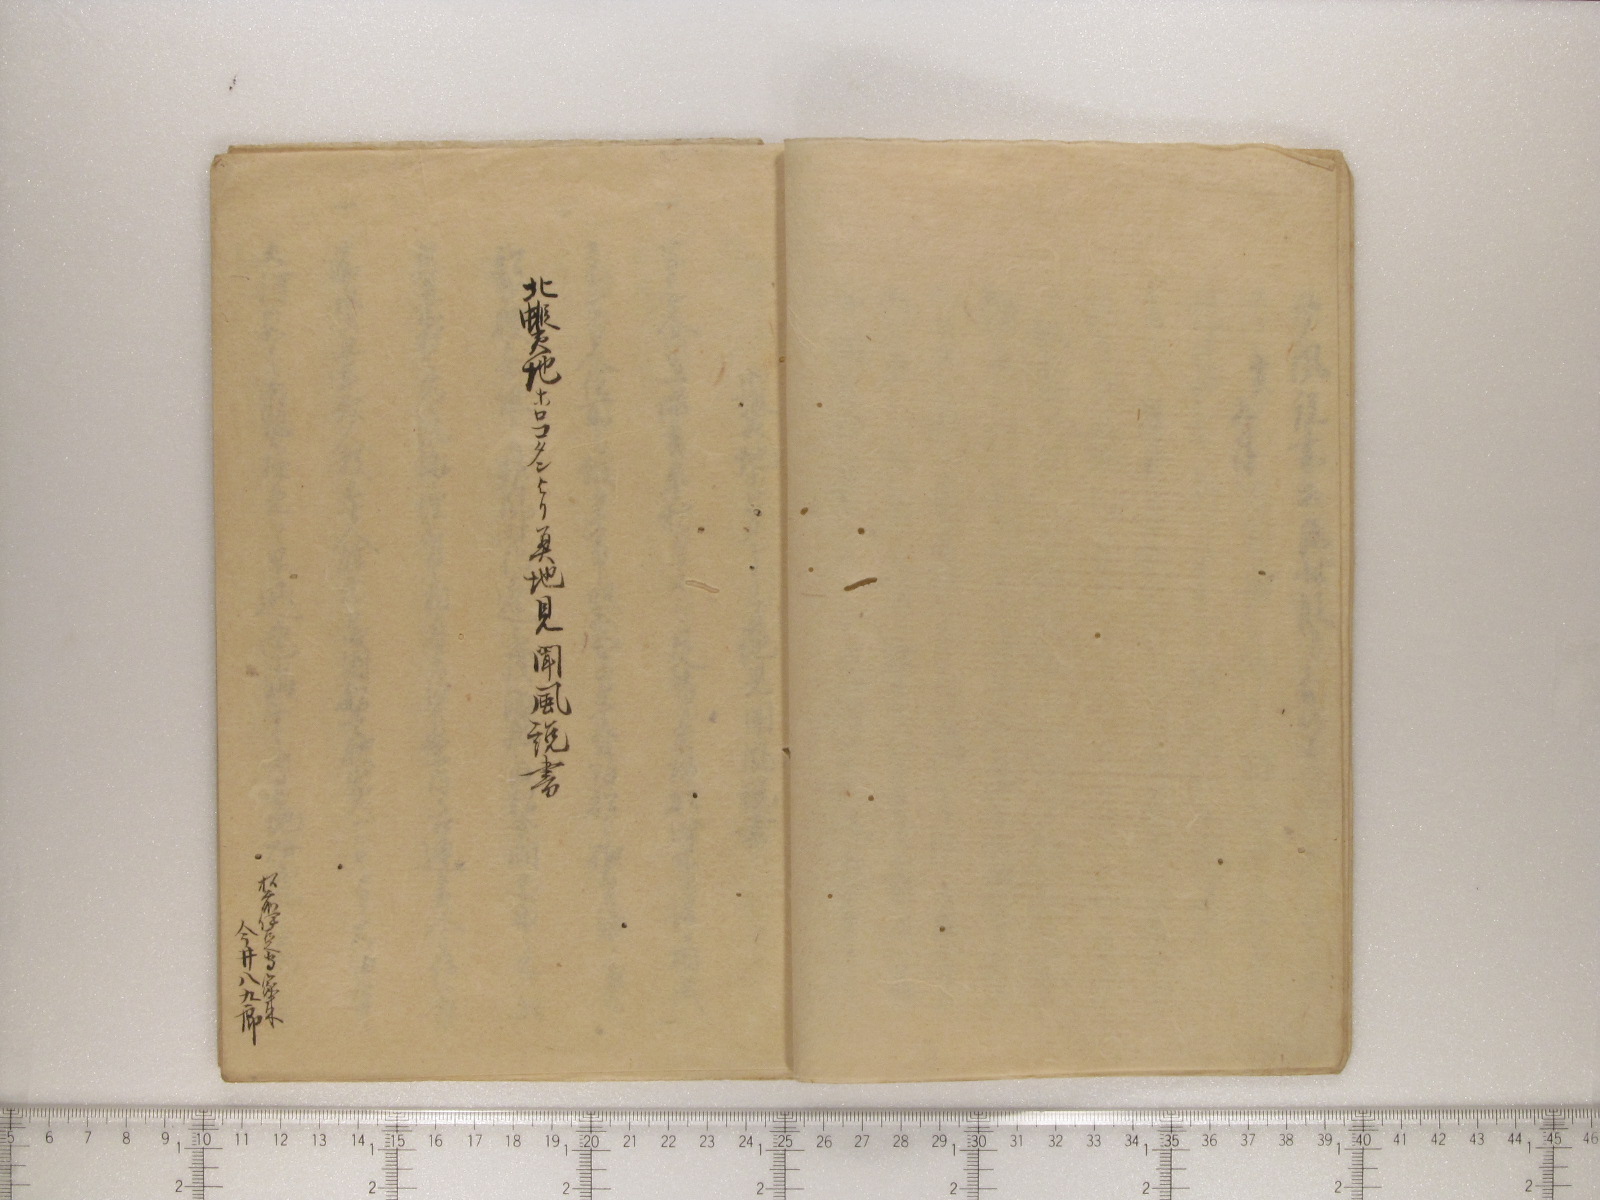 北蝦夷地ホロコタンより奥地見聞風説書
松前伊豆守家来
今井八九郎
5 6 7 8 9 10 11 12 13 14 15 16 17 18 19 20 21 22 23 24 25 26 27 28 29 30 31 32 33 34 35 36 37 38 39 40 41 42 43 44 45 46
1 1 1 1 1 1 1 1
2 2 2 2 2 2 2 2